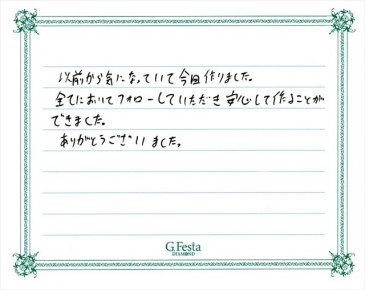 以前から気になっていて今回作りました。
全てにおいてフォローしていただき安心して作ることが
できました。
ありがとうございました。
G.Festa
DIAMOND